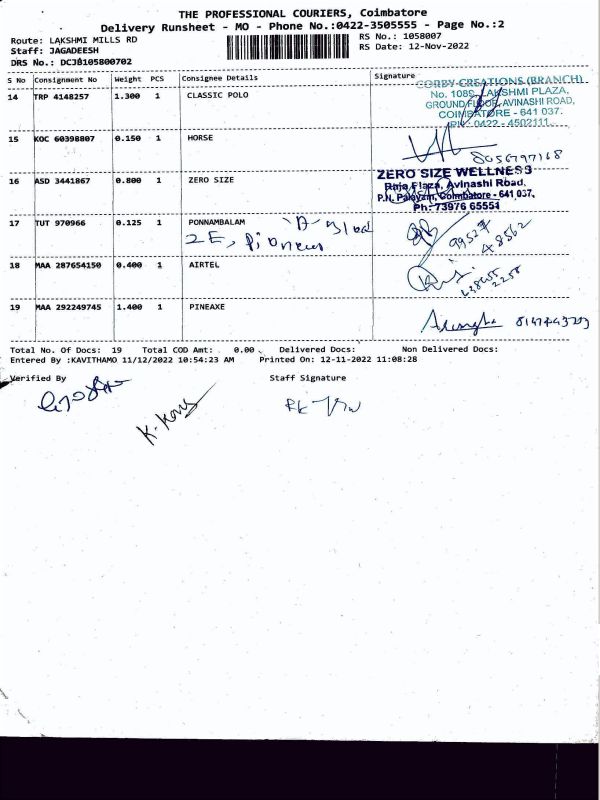 THE PROFESSIONAL COURIERS, Coimbatore
Delivery Runsheet - MO - Phone No.:0422-3505555 - Page No.:2
Route: LAKSHMI MILLS RD
RS No.: 1058007
Staff: JAGADEESH
RS Date: 12-Nov-2022
DRS No.: DCJB105800702
S No Consignment No Weight PCS Consignee Details Signature
14 TRP 4148257 1.300 1 CLASSIC POLO
CORBY CREATIONS (BRANCH)
No. 1089, LAKSHMI PLAZA,
GROUND FLOOR, AVINASHI ROAD,
COIMBATORE - 641 037.
PH : 0422 - 4502111
15 KOC 60398807 0.150 1 HORSE
8056797168
16 ASD 3441867 0.800 1 ZERO SIZE
ZERO SIZE WELLNESS
Raja Plaza, Avinashi Road,
P.N. Palayam, Coimbatore - 641 037.
Ph: 73976 65551
17 TUT 970966 0.125 1 PONNAMBALAM
2E, Pioneer
99527
48562
18 MAA 287654150 0.400 1 AIRTEL
19 MAA 292249745 1.400 1 PINEAXE
Total No. Of Docs: 19 Total COD Amt: 0.00 Delivered Docs: Non Delivered Docs:
Entered By :KAVITHAMO 11/12/2022 10:54:23 AM Printed On: 12-11-2022 11:08:28
Verified By Staff Signature